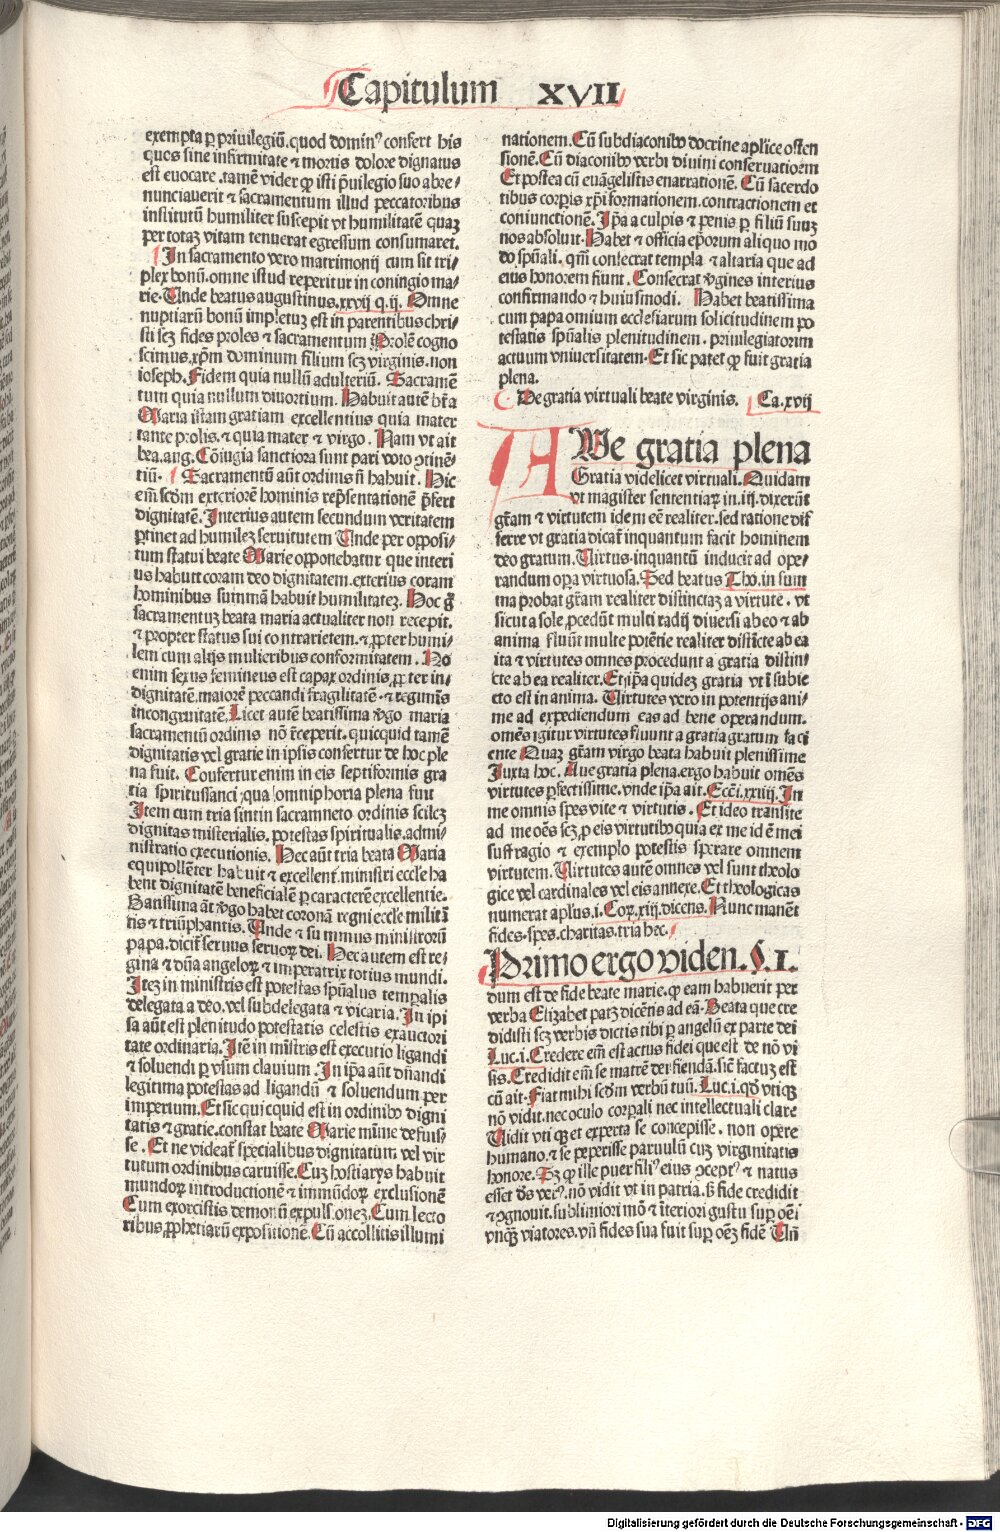 Capitulum XVII
exempta ꝑ priuilegiũ. quod dominꝰ confert his
quos sine infirmitate ⁊ mortis dolore dignatus
est euocare. tamẽ vider ꝙ isti p̃uilegio suo abre⸗
nunciauerit ⁊ sacramentum illud peccatoribus
institutũ humiliter suscepit vt humilitatẽ quaꝫ
per totaꝫ vitam tenuerat egressum consumaret.
In sacramento vero matrimonij cum sit tri⸗
plex bonũ. omne istud reperitur in coniugio ma⸗
rie. Unde beatus augustinus. xxvij q. ij. Omne
nuptiarũ bonũ impletuꝫ est in parentibus chri⸗
sti scꝫ fides proles ⁊ sacramentum Prolẽ cogno
scimus. xp̃m dominum filium scꝫ virginis. non
ioseph. Fidem quia nullũ adulteriũ. Sacramẽ
tum quia nullum diuortium. Habuit autẽ bt̃a
Maria istam gratiam excellentius quia mater
tante prolis. ⁊ quia mater ⁊ virgo. Nam vt ait
bea. aug. Cõiugia sanctiora sunt pari voto ↄtinẽ⸗
tiũ. Sacramentũ aũt ordinus ñ habuit. Hic
em̃ scd̃m exteriorẽ hominis rep̃sentationẽ p̃fert
dignitatẽ. Interius autem secundum veritatem
ꝑtinet ad humileꝫ seruitutem Unde per opposi⸗
tum statui beate Marie opponebatur que interi
us habuit coram deo dignitatem. exterius coram
hominibus summã habuit humilitateꝫ. Hoc g̃
sacramentuꝫ beata maria actualiter non recepit.
⁊ propter status sui contrarietem. ⁊ ꝓpter humi⸗
lem cum alijs mulieribus conformitatem. No
enim sexus femineus est capax ordinis. ꝓpter in⸗
dignitatẽ. maiorẽ peccandi fragilitatẽ. ⁊ regimĩs
incongruitatẽ. Licet autẽ beatissima v̓go maria
sacramentũ ordinis nõ r̃ceperit. quicquid tamẽ
dignitatis vel gratie in ipsis confertur de hoc ple
na fuit. Confertur enim in eis septiformis gra
tia spiritussancti, qua omniphoria plena fuit
Item cum tria sint in sacramneto ordinis scilicꝫ
dignitas misterialis. potestas spiritualis. admi⸗
nistratio executionis. Hec aũt tria beata Maria
equipollẽter habuit ⁊ excellent̃. ministri eccle ha
bent dignitatẽ beneficialẽ ꝑ caracterẽ excellentie.
Batissima ãt v̓go habet coronã regni eccle militã
tis ⁊ triũphantis. Unde ⁊ summus ministrorũ
papa. dicit̃ seruus seruorꝫ dei. Hec autem est re⸗
gina ⁊ dñа angelorꝫ ⁊ imperatrix totius mundi.
Iteꝫ in ministris est potestas sp̃ualus temꝑalis
delegata a deo. vel subdelegata ⁊ vicaria. In ipi
sa aũt est plenitudo potestatis celestis ex auctori
tate ordinaria. Itẽ in mĩstris est executio ligandi
⁊ soluendi ꝑ vsum clauium. In ip̃a aũt dñandi
legitima potestas ad ligandũ ⁊ soluendum per
imperium. Et sic quicquid est in ordinibꝰ digni
tatis ⁊ gratie. constat beate Marie mĩme defuis⸗
se. Et ne videat̃ specialibus dignitatum vel vir
tutum ordinibus caruisse. Cuꝫ hostiarys habuit
mundorꝫ introductionẽ ⁊ immũdorꝫ exclusionẽ
Cum exorcistis demonũ expulsionez. Cum lecto
ribus ꝓphetiarũ expositionẽ. Cũ accollitis illumi
nationem. Cũ subdiaconibꝰ doctrine aplice osten
sionẽ. Cũ diaconibꝰ verbi diuini conseruatiorm
Et postea cũ euãgelistis enarrationẽ. Cũ sacerdo
tibus corꝑis xp̃i formationem. contractionem et
coniunctionẽ. Ip̃a a culpis ⁊ penis ꝑ filiũ suuꝫ
nos absoluit. Habet ⁊ officia ep̃orum aliquo mo
do sp̃uali. qm̃ consecrat templa ⁊ altaria que ad
eius honorem fiunt. Consecrat v̓gines interius
confirmando ⁊ huiusmodi. Habet beatissima
cum papa omium ecclesiarum solicitudinem po
testatis sp̃ualis plenitudinem. priuilegiatorum
actuum vniuersitatem. Et sic patet ꝙ fuit gratia
plena.
De gratia virtuali beate virginis. Ca. xvij
AWe gratia plena
Gratia videlicet virtuali. Quidam
vt magister sententiarꝫ in. iij. dixerũt
gr̃am ⁊ virtutem idem eẽ realiter. sed ratione dif
ferre vt gratia dicat̃ inquantum facit hominem
deo gratum. Uirtus. inquantũ inducit ad ope⸗
randum oꝑa virtuosa. Sed beatus Tho. in sum
ma probat gr̃am realiter distinctaꝫ a virtute. vt
sicut a sole ꝓcedũt multi radij diuersi ab eo ⁊ ab
anima fluũt multe potẽtie realiter distĩcte ab ea
ita ⁊ virtutes omnes procedunt a gratia distin⸗
cte ab ea realiter. Et ip̃a quideꝫ gratia vt ĩ subie
cto est in anima. Uirtutes vero in potentijs ani⸗
me ad expediendum eas ad bene operandum.
omẽs igitur virtutes fluunt a gratia gratum faci
ente Quaꝫ gr̃am virgo beata habuit plenissime
Iuxta hoc. Aue gratia plena. ergo habuit omẽs
virtutes ꝑfectissime. vnde ip̃a ait. Ecc̃i. xxiiij. In
me omnis spes vite ⁊ virtutis. Et ideo transite
ad me oẽs scꝫ ꝑ eis virtutibꝰ quia ex me id ẽ mei
suffragio ⁊ exemplo potestis sperare omnem
virtutem. Uirtutes autẽ omnes vel sunt theolo
gice vel cardinales vel eis annexe. Et theologicas
numerat apl̃us. i. Corꝫ. xiij. dicens. Nunc manẽt
fides. spes. charitas. tria hec.
Primo ergo viden. §. I.
dum est de fide beate marie. ꝙ eam habuerit per
verba Elizabet patꝫ dicẽtis ad eã. Beata que cre
didisti scꝫ verbis dictis tibi ꝑ angelũ ex parte dei
Luc. i. Credere em̃ est actus fidei que est de nõ vi
sis. Credidit em̃ se matrẽ dei fiendã. sic̃ factuꝫ est
cũ ait. Fiat mihi scd̃m verbũ tuũ. Luc. i. qd̃ vtiqꝫ
nõ vidit. nec oculo corꝑali nec intellectuali clare
Uidit vtiqꝫ et experta se concepisse. non opere
humano. ⁊ se peperisse paruulũ cuꝫ virginitatis
honore. Sꝫ ꝙ ille puer filiꝰ eius ↄceptꝰ ⁊ natus
esset d̃s verꝰ. nõ vidit vt in patria. sꝫ fide credidit
⁊ ↄgnouit. sublimiori mõ ⁊ ĩteriori gustu suꝑ oẽi
vnqꝫ̃ viatores. vñ fides sua fuit suꝑ oẽꝫ fidẽ Uñ
Digitalisierung gefördert durch die Deutsche Forschungsgemeinschaft - DFG